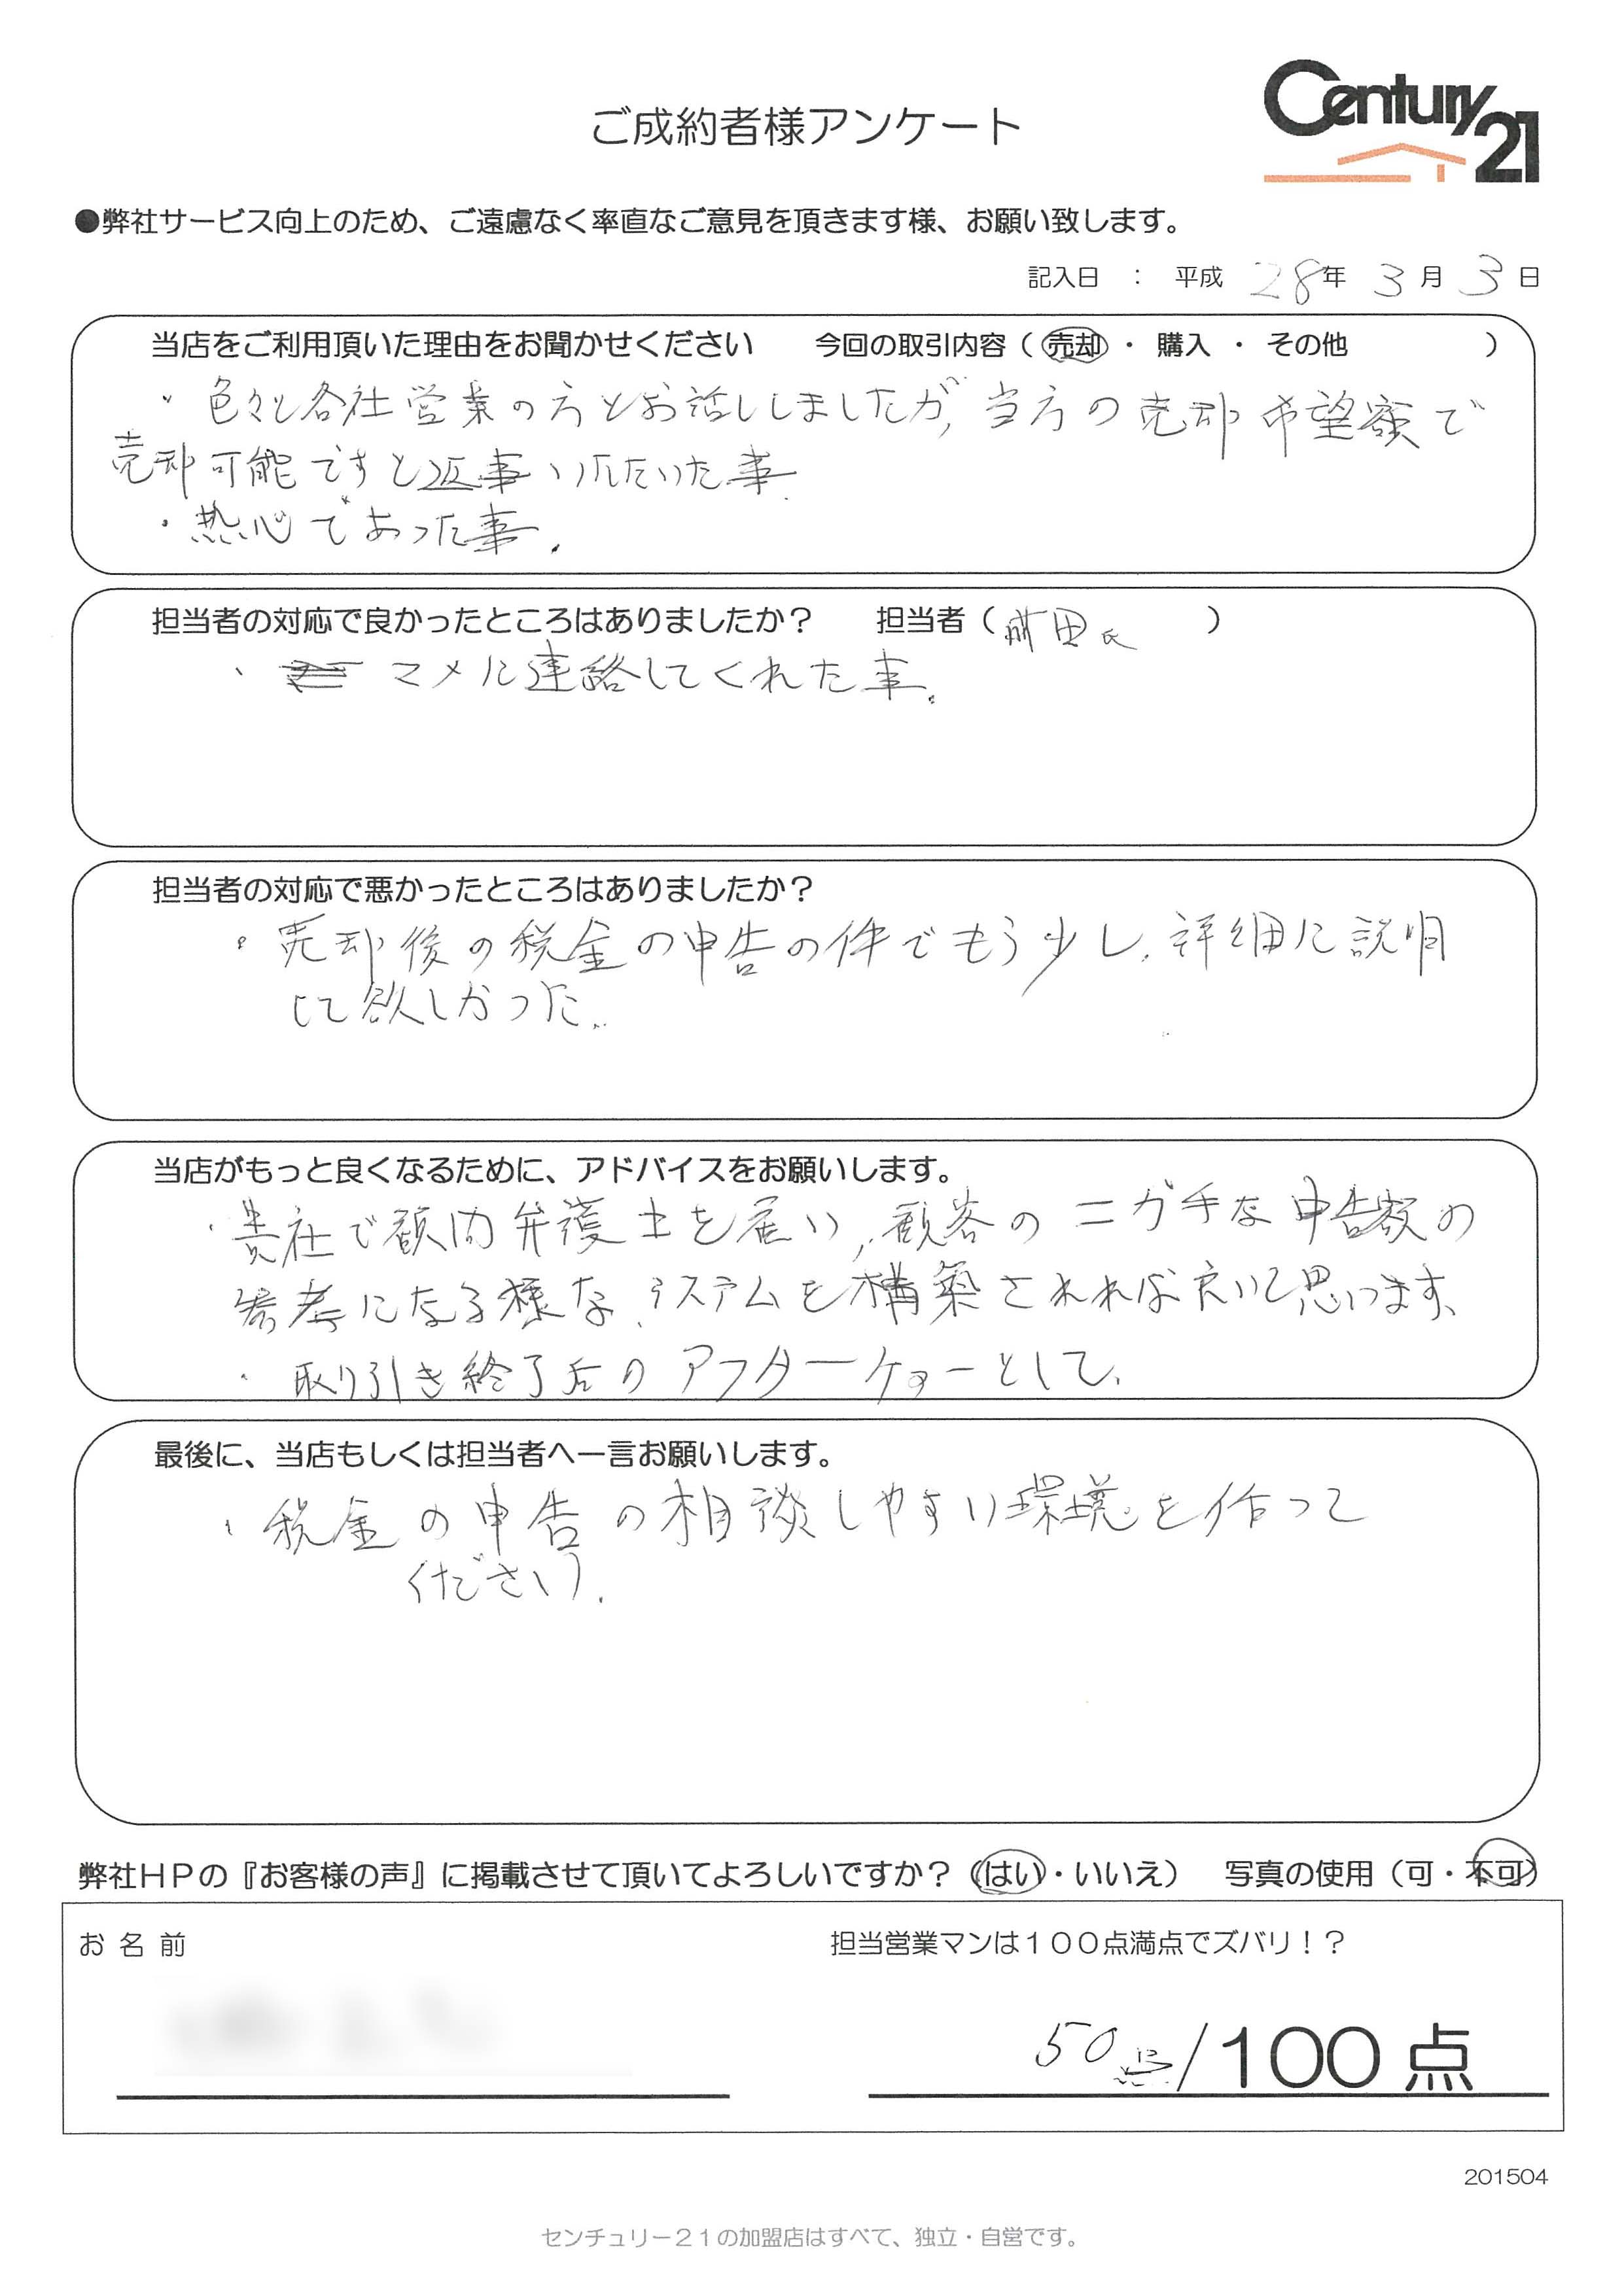 ご成約者様アンケート
Century 21
●弊社サービス向上のため、ご遠慮なく率直なご意見を頂きます様、お願い致します。
記入日 : 平成 28年 3月 3日
当店をご利用頂いた理由をお聞かせください 今回の取引内容（ 売却 ・ 購入 ・ その他 ）
・色々と各社営業の方とお話ししましたが、当方の売却希望額で
売却可能ですと返事いただいた事
・熱心であった事.
担当者の対応で良かったところはありましたか？ 担当者（ 前田氏 ）
・マメに連絡してくれた事。
担当者の対応で悪かったところはありましたか？
・売却後の税金の申告の件でもう少し、詳細に説明
して欲しかった。
当店がもっと良くなるために、アドバイスをお願いします。
・貴社で顧問弁護士を雇い、顧客のニガ手な申告の
参考になる様な、システムを構築されれば良いと思います、
・取り引き終了后のアフターケョーとして、
最後に、当店もしくは担当者へ一言お願いします。
・税金の申告の相談しやすい環境を作って
ください.
弊社ＨＰの『お客様の声』に掲載させて頂いてよろしいですか？（はい・いいえ） 写真の使用（可・不可）
お 名 前 担当営業マンは１００点満点でズバリ！？
50点/100 点
201504
センチュリー２１の加盟店はすべて、独立・自営です。